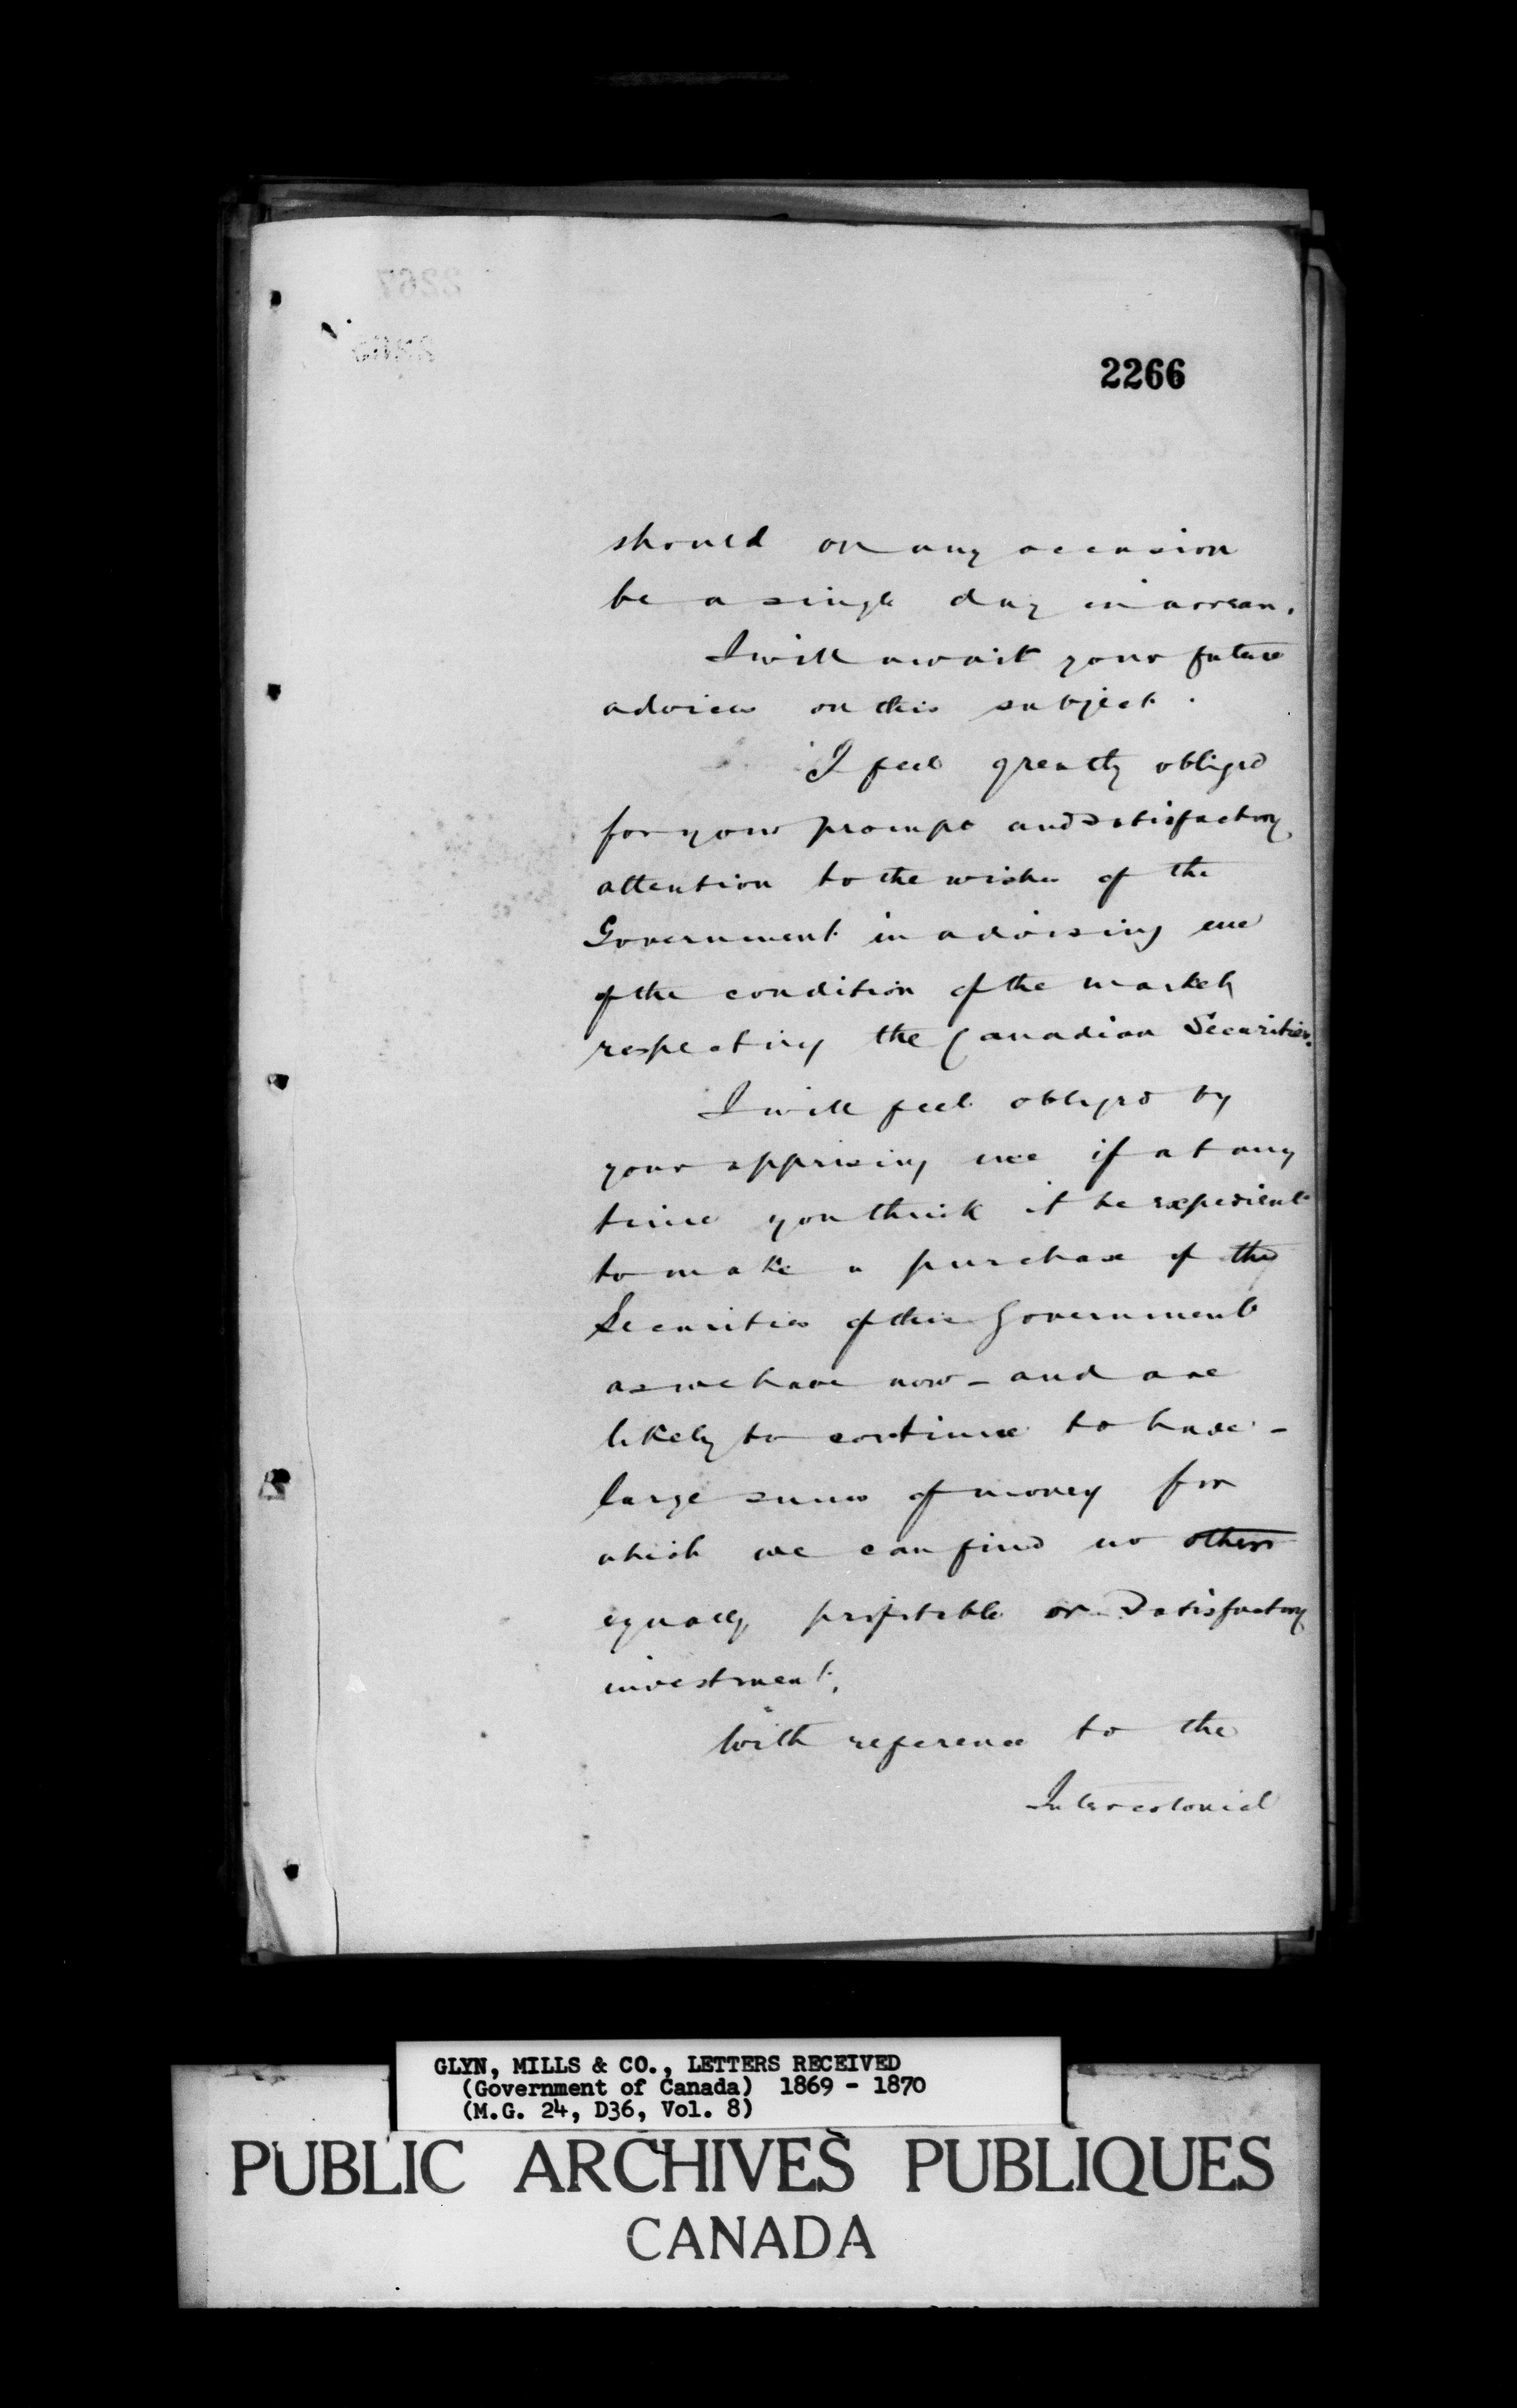 2266
should on any occasion
be a single day in arrear.
I will await your future
advices on this subject.
I feel greatly obliged
for your prompt and satisfactory
attention to the wishes of the
Government in advising me
of the condition of the market
respecting the Canadian Securities.
I will feel obliged by
your apprising me if at any
time you think it be expedient
to make a purchase of the
Securities of this Government
as we have now - and are
likely to continue to have -
large sums of money for
which we can find no other
equally profitable or satisfactory
investment.
With reference to the
Intercolonial
GLYN, MILLS & CO., LETTERS RECEIVED
(Government of Canada) 1869 - 1870
(M.G. 24, D36, Vol. 8)
PUBLIC ARCHIVES PUBLIQUES
CANADA